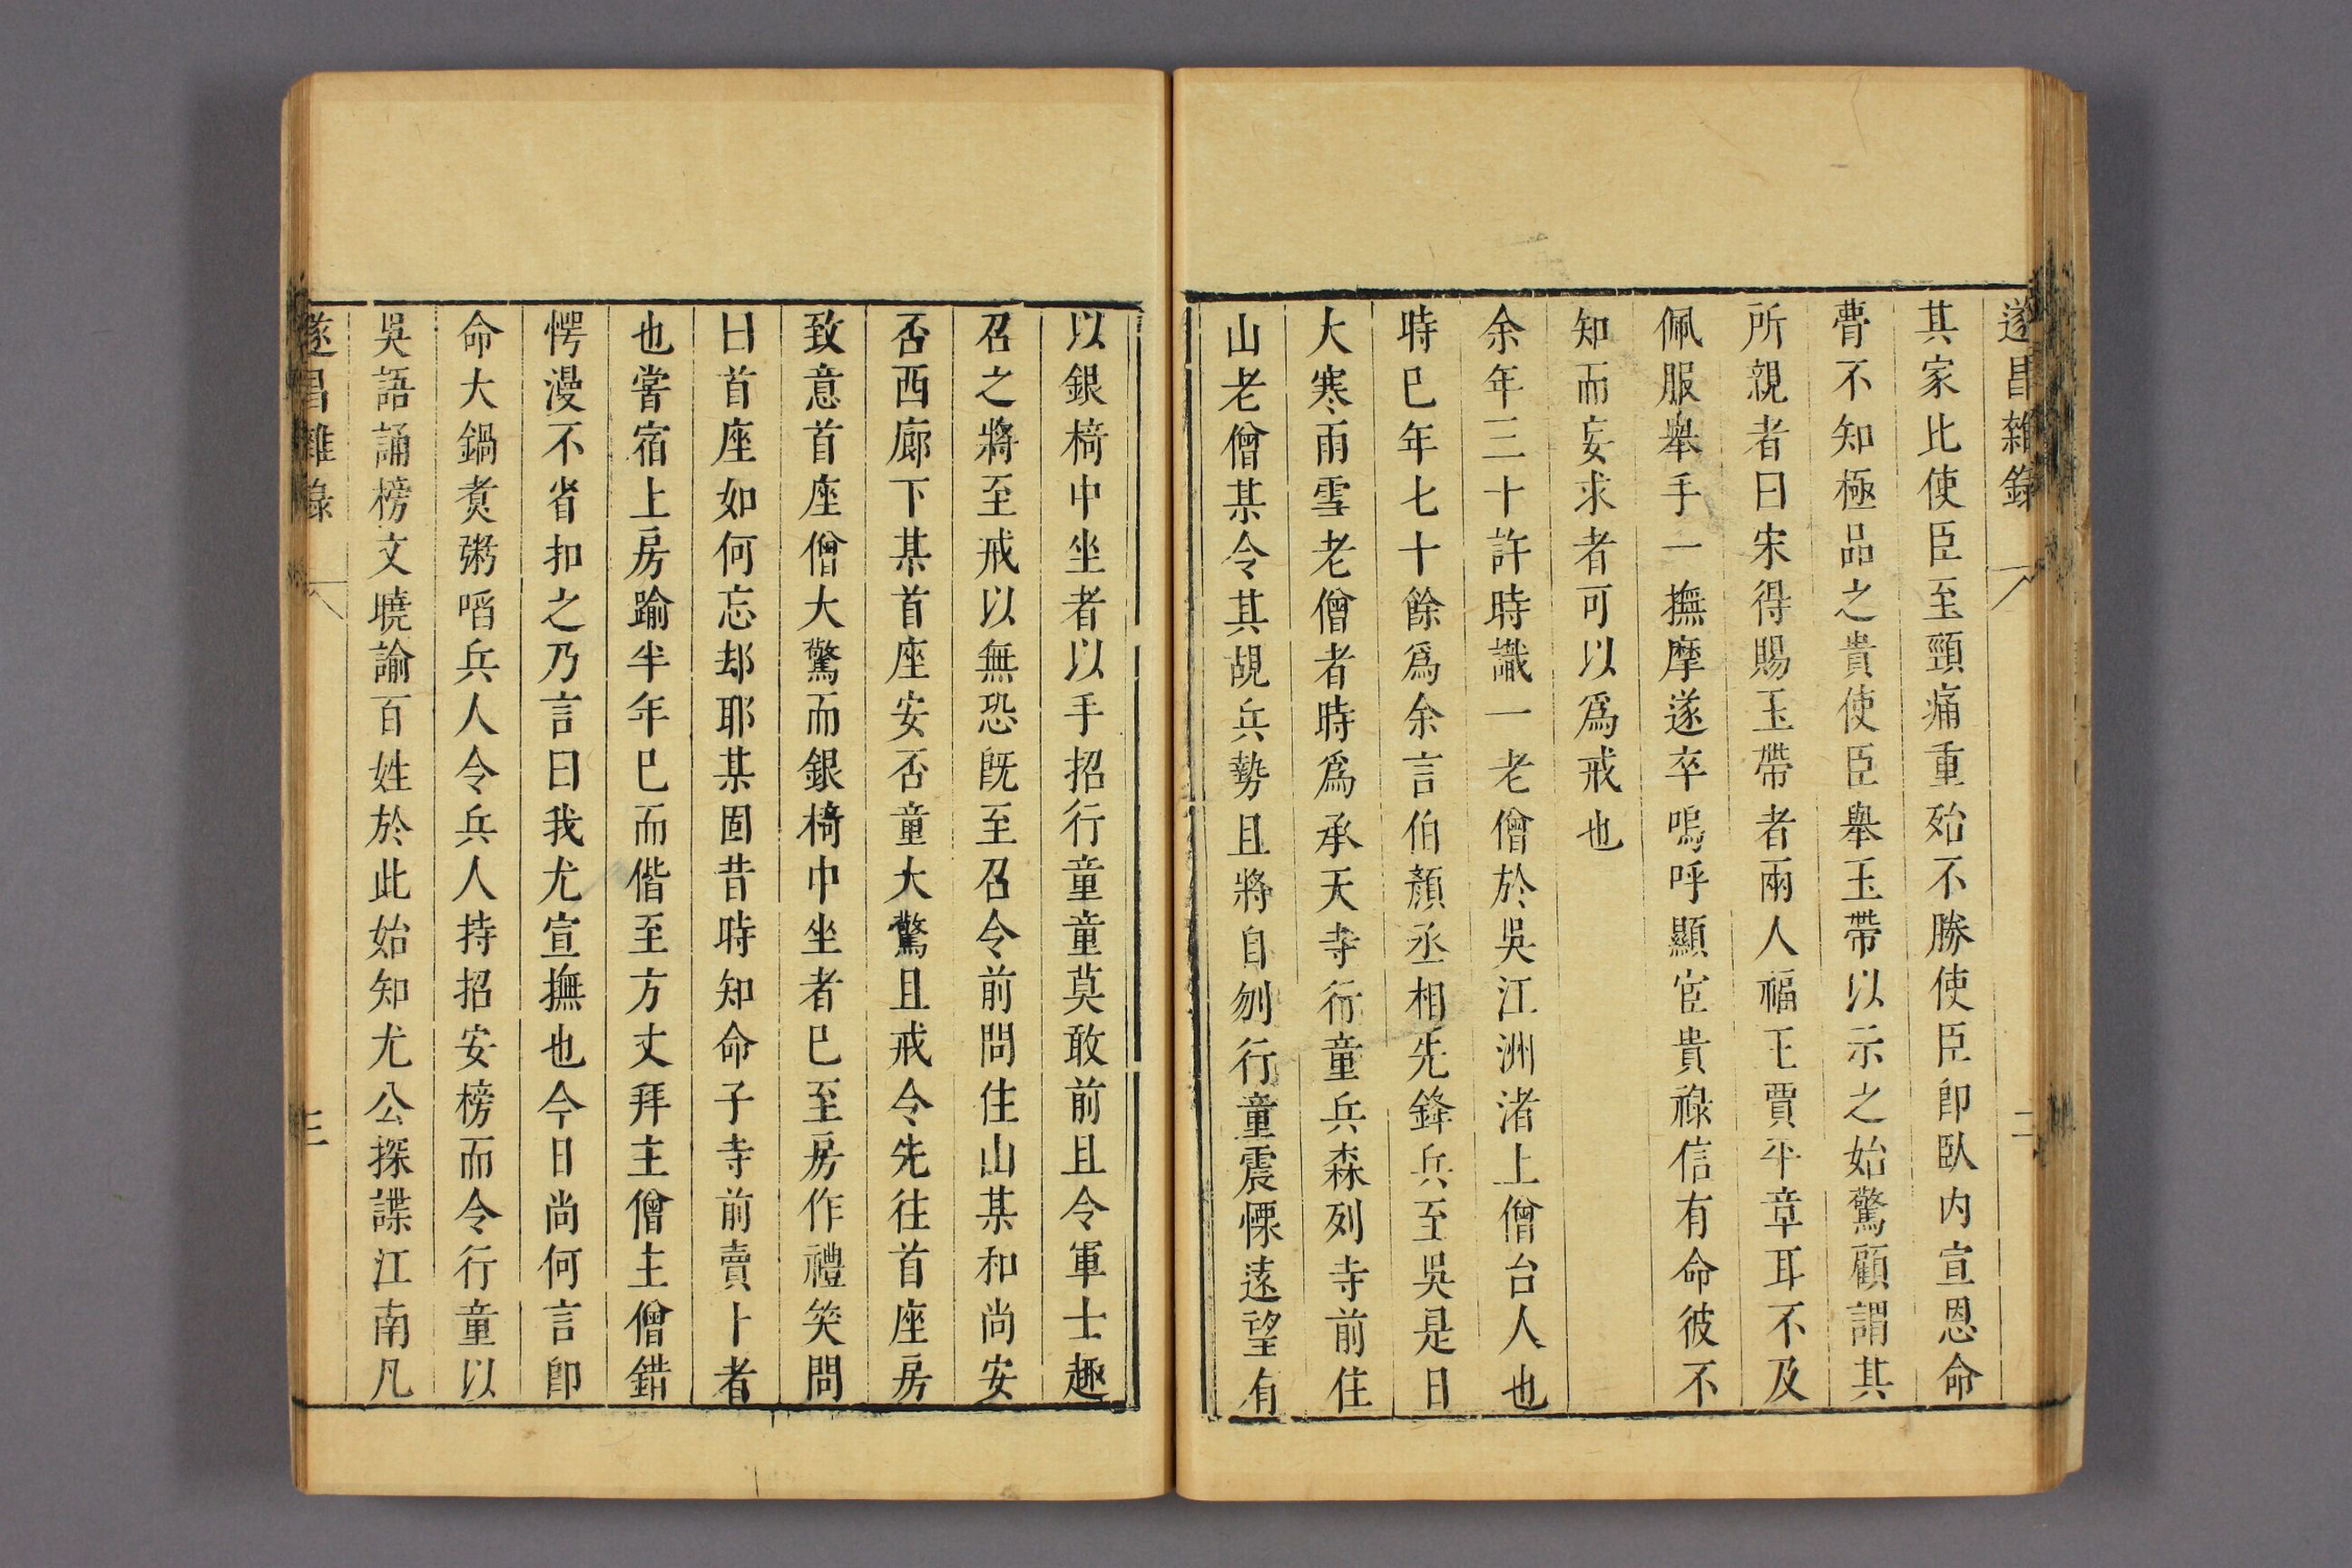 遂昌雜錄
二
其家比使臣至頸痛重殆不勝使臣卽臥内宣恩命
曹不知極品之貴使臣舉玉帶以示之始驚顧謂其
所親者曰宋得賜玉帶者兩人福王賈平章耳不及
佩服舉手一撫摩遂卒嗚呼顯宦貴祿信有命彼不
知而妄求者可以爲戒也
余年三十許時識一老僧於吳江洲渚上僧台人也
時巳年七十餘爲余言伯顏丞相先鋒兵至吳是日
大寒雨雪老僧者時爲承天寺行童兵森列寺前住
山老僧某令其覘兵勢且將自刎行童震慄遠望有
以銀椅中坐者以手招行童童莫敢前且令軍士趣
召之將至戒以無恐旣至召令前問住山某和尚安
否西廊下某首座安否童大驚且戒令先往首座房
致意首座僧大驚而銀椅中坐者巳至房作禮笑問
曰首座如何忘却耶某固昔時知命子寺前賣卜者
也嘗宿上房踰半年巳而偕至方丈拜主僧主僧錯
愕漫不省扣之乃言曰我尤宣撫也今日尚何言卽
命大鍋煑粥啗兵人令兵人持招安榜而令行童以
吳語誦榜文曉諭百姓於此始知尤公探諜江南凡
遂昌雜錄
三